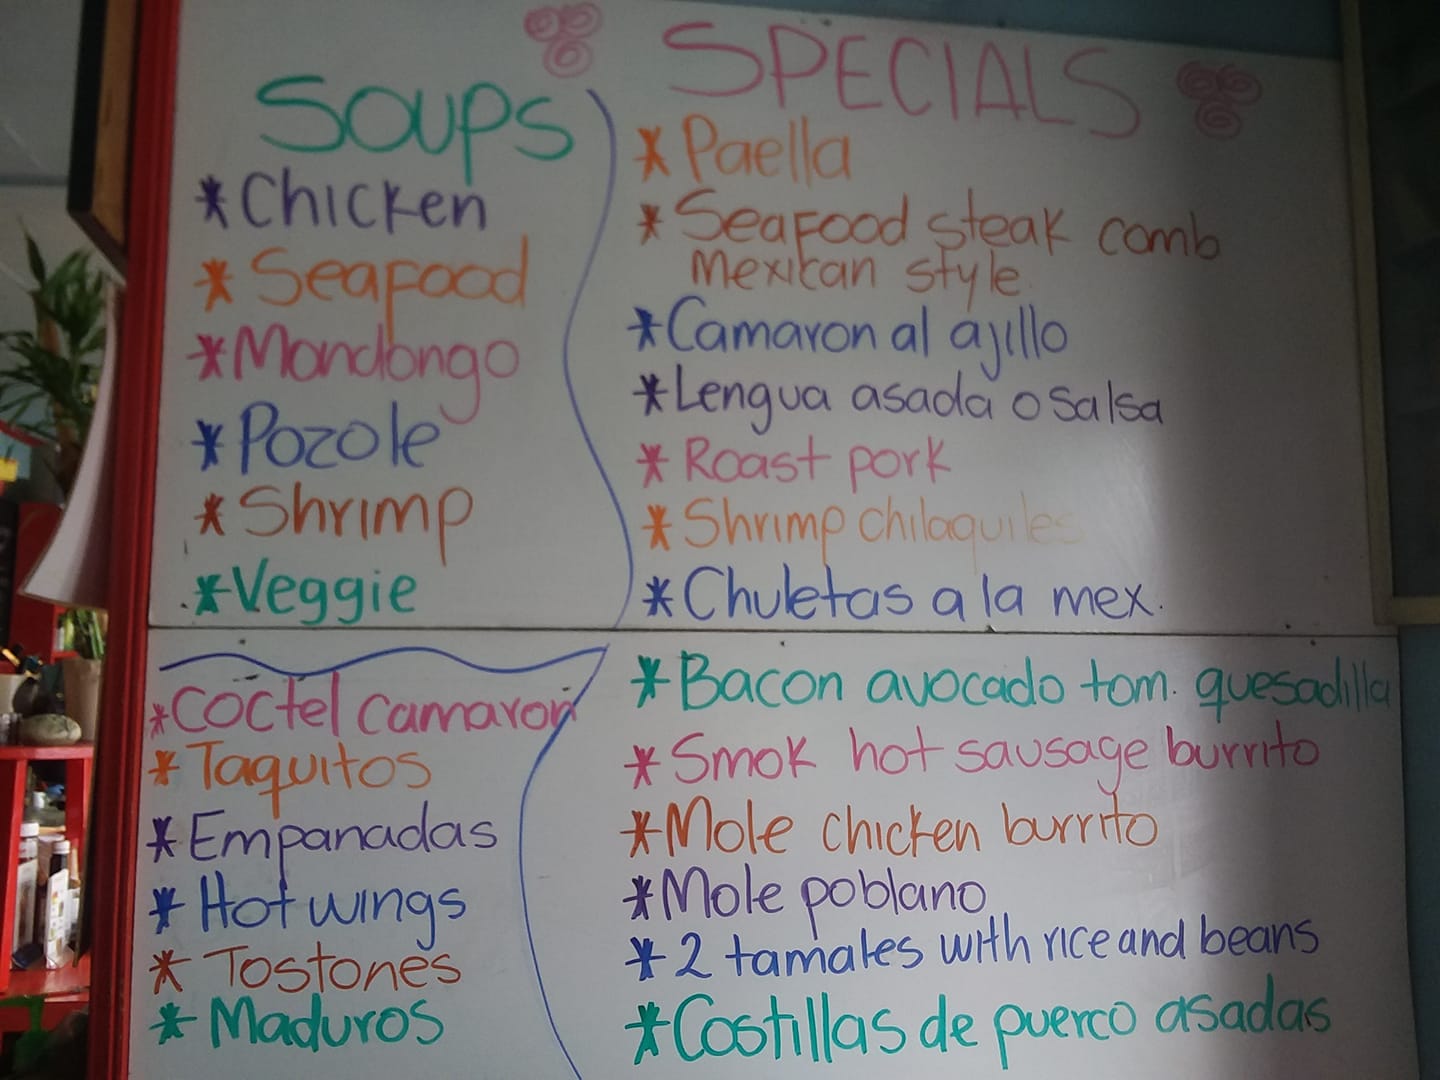 SOUPS
*Chicken
*Seafood
*Mondongo
*Pozole
*Shrimp
*Veggie
*Coctel camaron
*Taquitos
*Empanadas
*Hot wings
*Tostones
*Maduros
SPECIALS
*Paella
*Seafood steak comb
Mexican style
*Camaron al ajillo
*Lengua asada o salsa
*Roast pork
*Shrimp chilaquiles
*Chuletas a la mex.
*Bacon avocado tom. quesadilla
*Smok hot sausage burrito
*Mole chicken burrito
*Mole poblano
*2 tamales with rice and beans
*Costillas de puerco asadas